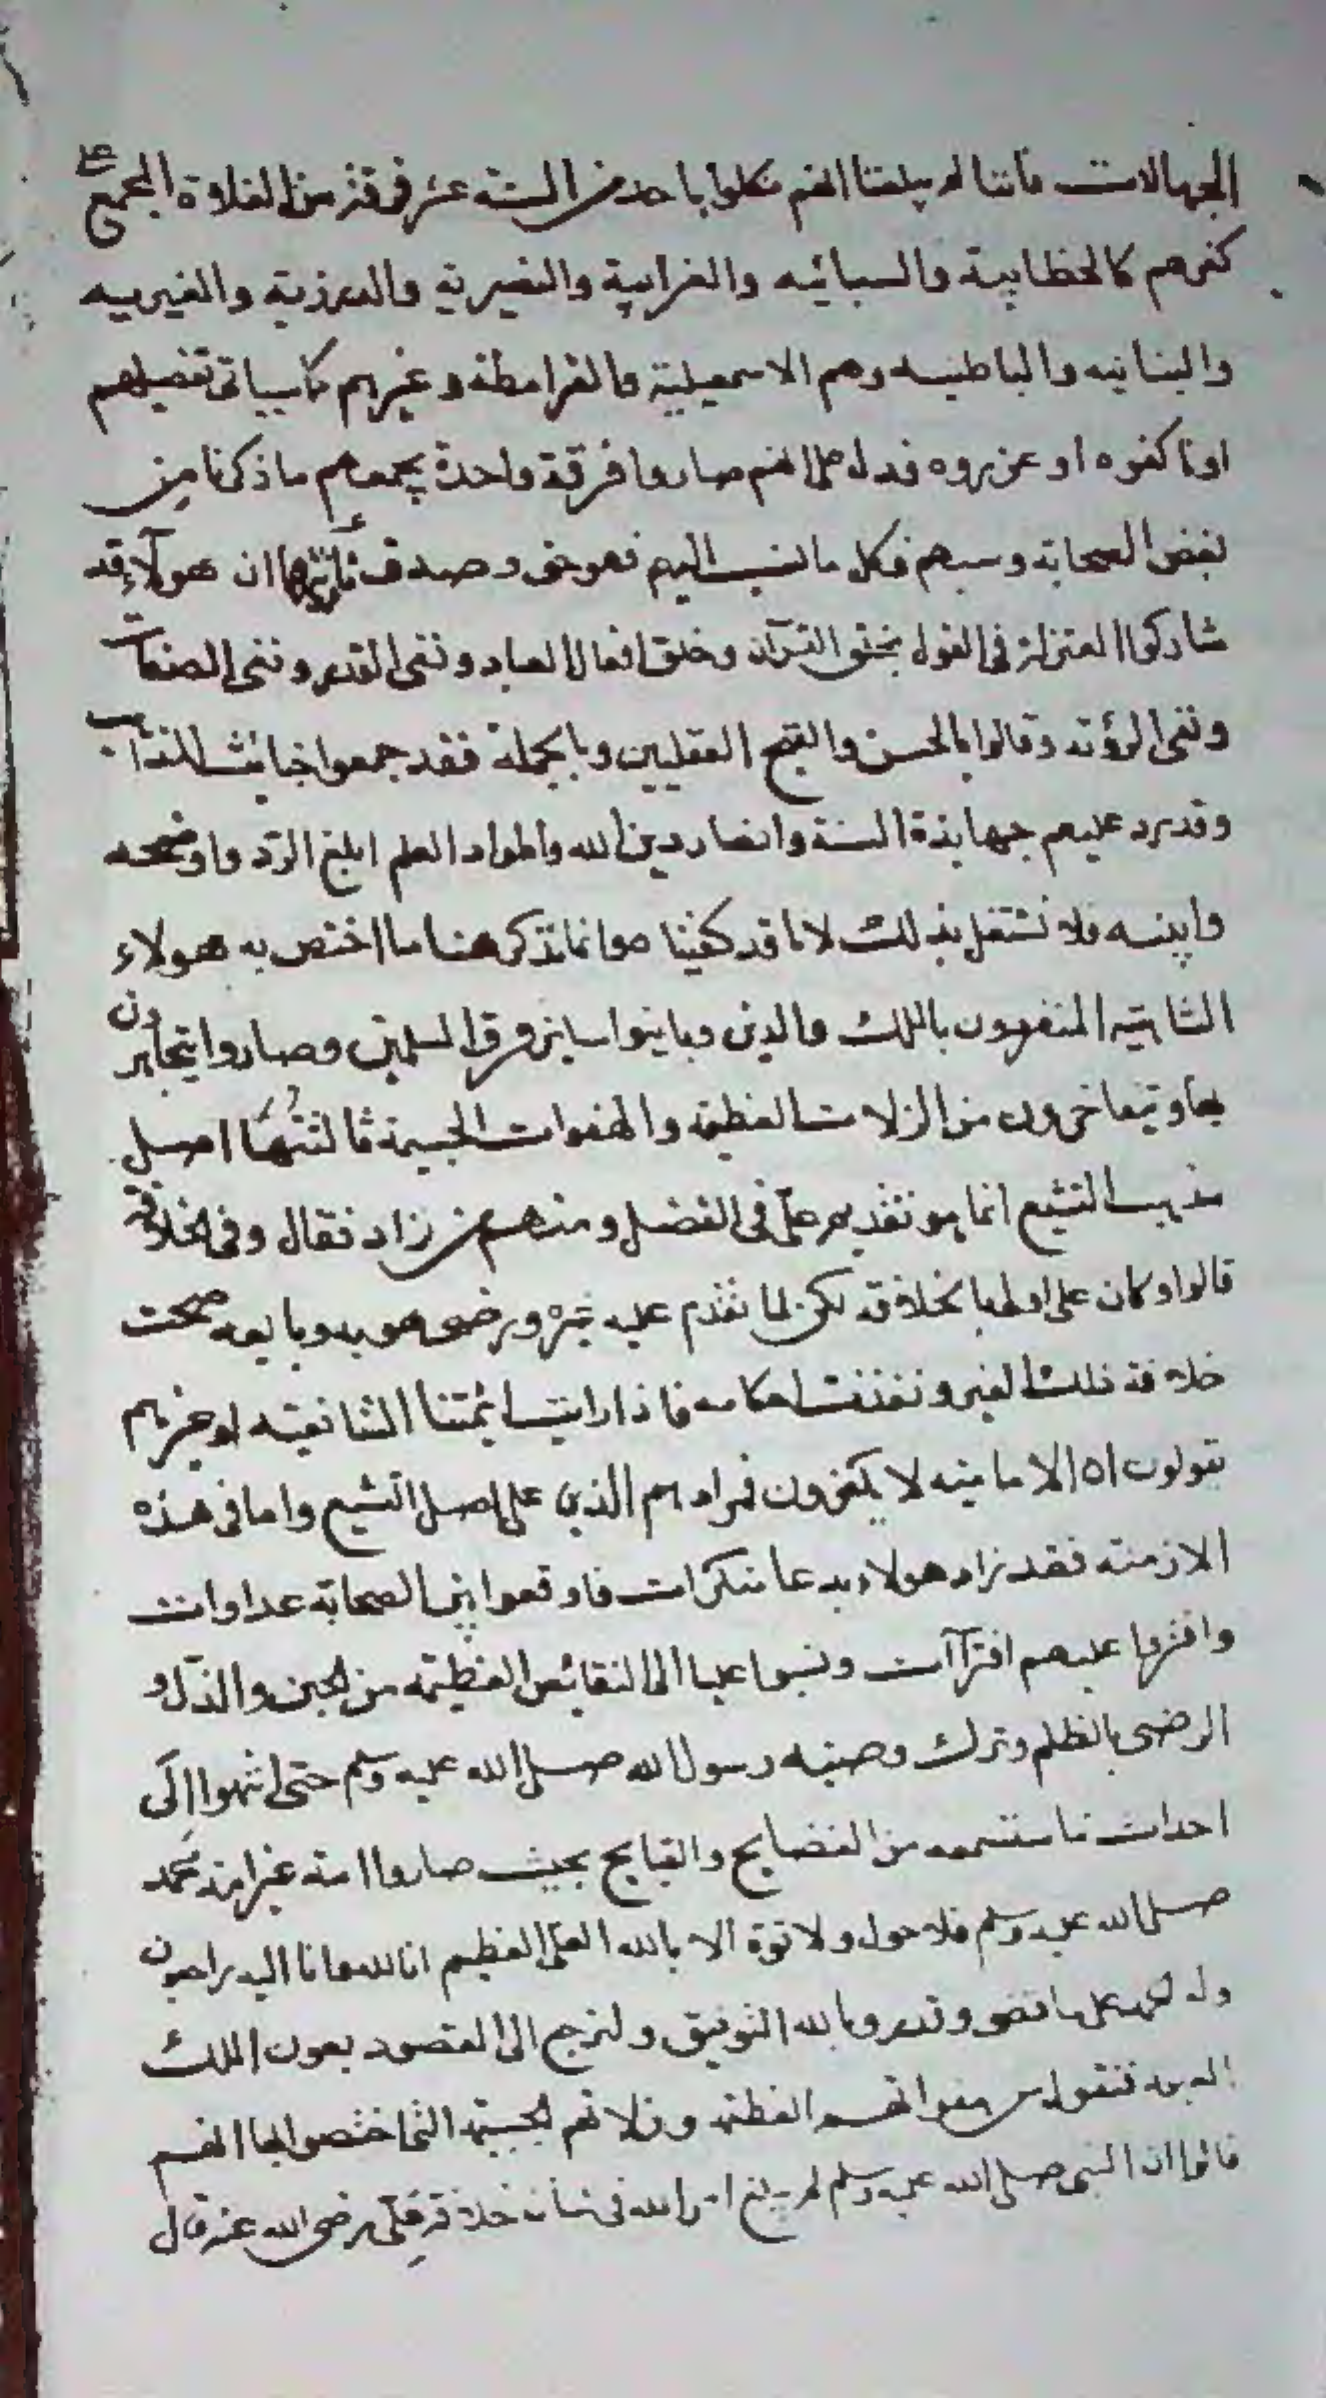 الجهالات فاننا لم يبلغنا انهم نكلوا باحد من الستة عشر فرقة من الغلاة المجمع على
كفرهم كالخطابية والسبائيه والغرابية والنصيرية والدرزية والغيريه
والبنانيه والباطنيه وهم الاسمعيلية والقرامطة وغيرهم كما سياتي تفصيلهم
او ناكفوه او عزروه فدل على انهم صاروا فرقة واحدة يجمعهم ما ذكرنا من
بغض الصحابة وسبهم فكل ما نسب اليهم فهو حق وصدق ثانيها ان هولآء قد
شاركوا المعتزلة في القول بخلق القرآن وخلق افعال العباد ونفى القدر ونفى الصفات
ونفى الرؤية وقالوا بالحسن والقبح العقليين وبالجملة فقد جمعوا خبائث المذاهب
وقد رد عليهم جهابذة السنة وانصار دين الله واطواد العلم ابلغ الرد واوضحه
وابينه فلا نشتغل بذلك لانا قد كفينا وانما نذكر هنا ما اختص به هولاء
المنفردون بالملك والدين وباينوا ساير فرق المسلمين وصاروا يتجاهرون
بها ويتفاخرون من الزلات العظيمة والهفوات الجسيمة ثالثها اصل
مذهب التشيع انما هو تقديم على في الفضل ومنهم من زاد فقال وفي الخلافة
قالوا وكان على اولى بالخلافة لكن لما تقدم عليه غيره ورضى هو به وبايعه صحت
خلافة ذلك الغير ونفذت احكامه فاذا رايت ائمتنا الشافعيه او غيرهم
يقولون ان الامامية لا يكفرون فمرادهم الذين على اصل التشيع واما في هذه
الازمنة فقد زاد هولاء بدعا منكرات فاوقعوا بين الصحابة عداوات
وافتروا عليهم افترآآت ونسبوا عليا الى النقائص العظيمه من الجبن والذل و
الرضى بالظلم وترك وصية رسول الله صلى الله عليه وسلم حتى انتهوا الى
احداث ما ستسمعه من الفضايح والقبايح بحيث صاروا امة غير امة محمد
صلى الله عليه وسلم فلا حول ولا قوة الا بالله العلى العظيم انا لله وانا اليه راجعون
وله الحمد على ما قضى وقدر وبالله التوفيق ولنرجع الى المقصود بعون الملك
فنقول من هفواتهم العظيمة وزلاتهم الجسيمة التي اختصوا بها انهم
قالوا ان النبى صلى الله عليه وسلم لم يبلغ امر الله في شان خلافة على رضى الله عنه قال